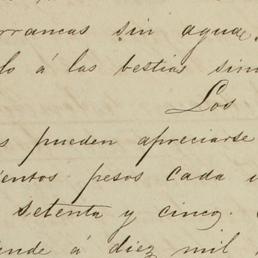 arrancas sin aguada
lo á las bestias sino
Los
s pueden apreciarse
ientos pesos cada u
setenta y cinco.
ende á diez mil